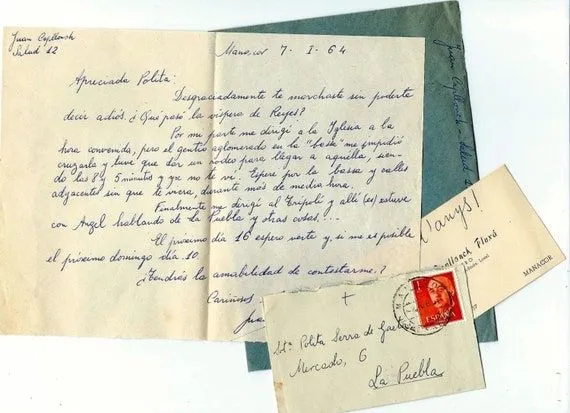 Juan
Salud 12
Manacor 7 - I - 64
Apreciada Polita:
Desgraciadamente te marchaste sin poderte
decir adiós. ¿Qué pasó la víspera de Reyes?
Por mi parte me dirigí a la Iglesia a la
hora convenida, pero el gentío aglomerado en la "bassa" me impidió
cruzarla y tuve que dar un rodeo para llegar a aquella, sien-
do las 8 y 5 minutos y ya no te ví. Espere por la bassa y calles
adyacentes sin que te viera, durante más de media hora.
Finalmente me dirigí al Trípoli y allí (es) estuve
con Angel hablando de la Puebla y otras cosas...
El próximo día 16 espero verte y, si me es posible
el próximo domingo día 10.
¿Tendrás la amabilidad de contestarme?
Cariñosos
Juan
d'anys!
Florà
MANACOR
ESPAÑA
Srta Polita Serra de
Mercado, 6
La Puebla